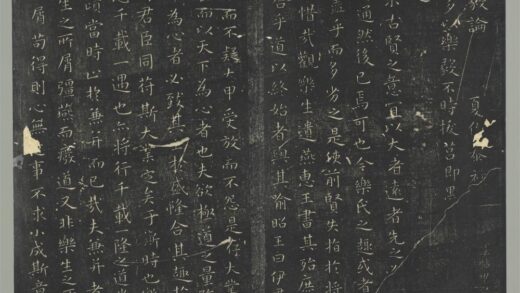 毅論 夏侯泰初
多以樂毅不時拔莒即墨
之
求古賢之意宜以大者遠者先之
通然後已焉可也今樂氏之趣或者
盡乎而多劣之是使前賢失指於將
惜哉觀樂生遺燕惠王書其殆庶
合乎道以終始者與其喻昭王曰伊尹
而不疑大甲受放而不怨是存大業
而以天下為心者也夫欲極道之量務
為心者必致其於盛隆合其趣於
君臣同符斯大業定矣于斯時也樂
志千載一遇也亦將行千載一隆之道
蹟當時止於兼并而已哉夫兼并者
生之所屑彊燕而廢道又非樂生之
屑苟得則心無事不求小成斯意